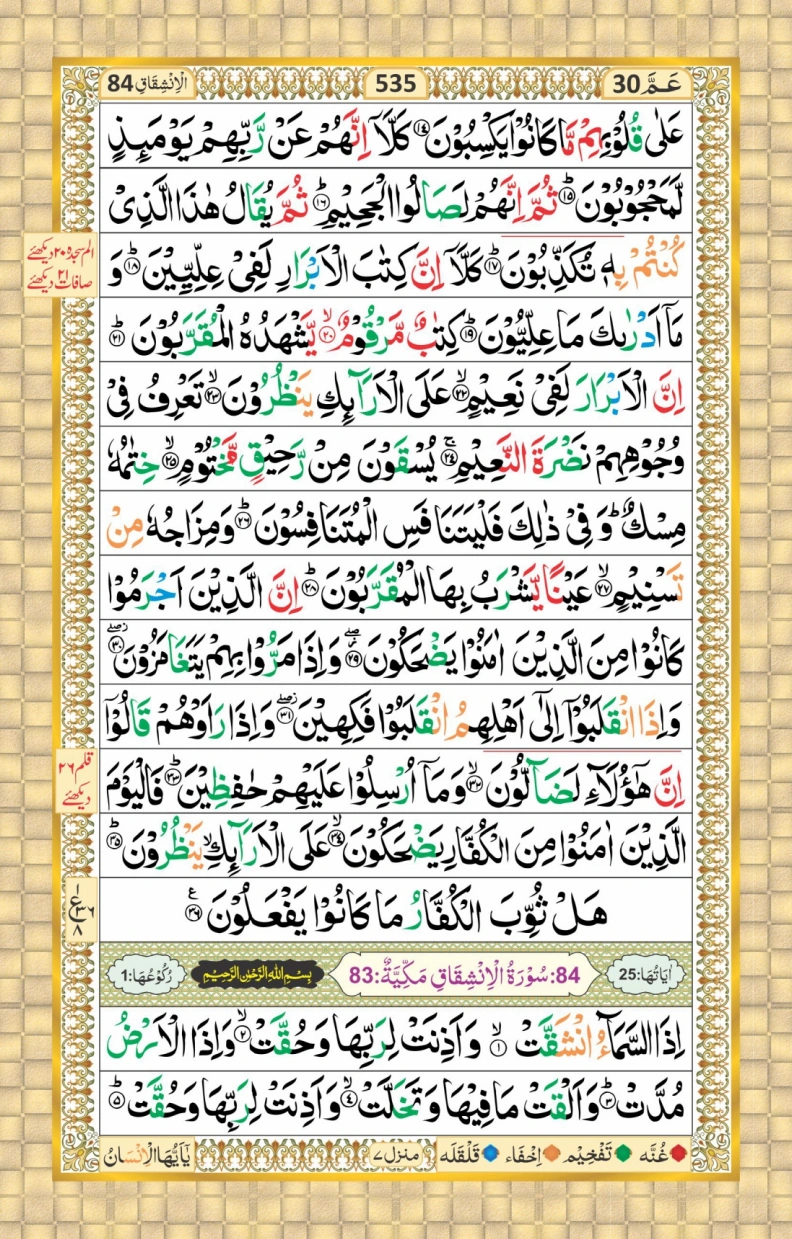 عَمَّ 30
535
اَلْاِنْشِقَاقِ 84
عَلٰى قُلُوْبِهِمْ مَّا كَانُوْا يَكْسِبُوْنَ ۝۱۴ كَلَّاۤ اِنَّهُمْ عَنْ رَّبِّهِمْ يَوْمَىِٕذٍ
لَّمَحْجُوْبُوْنَ ؕ۝۱۵ ثُمَّ اِنَّهُمْ لَصَالُوا الْجَحِيْمِ ؕ۝۱۶ ثُمَّ يُقَالُ هٰذَا الَّذِىْ
كُنْتُمْ بِهٖ تُكَذِّبُوْنَ ؕ۝۱۷ كَلَّاۤ اِنَّ كِتٰبَ الْاَبْرَارِ لَفِىْ عِلِّيِّيْنَ ؕ۝۱۸ وَ
الم سجدہ ۲۰ دیکھئے
صافات ۲۱ دیکھئے
مَاۤ اَدْرٰىكَ مَا عِلِّيُّوْنَ ؕ۝۱۹ كِتٰبٌ مَّرْقُوْمٌ ۙ۝۲۰ يَّشْهَدُهُ الْمُقَرَّبُوْنَ ؕ۝۲۱
اِنَّ الْاَبْرَارَ لَفِىْ نَعِيْمٍ ۙ۝۲۲ عَلَى الْاَرَآىِٕكِ يَنْظُرُوْنَ ۙ۝۲۳ تَعْرِفُ فِىْ
وُجُوْهِهِمْ نَضْرَةَ النَّعِيْمِ ۚ۝۲۴ يُسْقَوْنَ مِنْ رَّحِيْقٍ مَّخْتُوْمٍ ۙ۝۲۵ خِتٰمُهٗ
مِسْكٌ ؕ وَ فِىْ ذٰلِكَ فَلْيَتَنَافَسِ الْمُتَنَافِسُوْنَ ؕ۝۲۶ وَمِزَاجُهٗ مِنْ
تَسْنِيْمٍ ۙ۝۲۷ عَيْنًا يَّشْرَبُ بِهَا الْمُقَرَّبُوْنَ ؕ۝۲۸ اِنَّ الَّذِيْنَ اَجْرَمُوْا
كَانُوْا مِنَ الَّذِيْنَ اٰمَنُوْا يَضْحَكُوْنَ ۝۲۹ وَاِذَا مَرُّوْا بِهِمْ يَتَغَامَزُوْنَ ۝۳۰
وَاِذَا انْقَلَبُوْۤا اِلٰٓى اَهْلِهِمُ انْقَلَبُوْا فَكِهِيْنَ ۝۳۱ وَاِذَا رَاَوْهُمْ قَالُوْۤا
اِنَّ هٰۤؤُلَآءِ لَضَآلُّوْنَ ۙ۝۳۲ وَمَاۤ اُرْسِلُوْا عَلَيْهِمْ حٰفِظِيْنَ ؕ۝۳۳ فَالْيَوْمَ
قلم ۲۶
دیکھئے
الَّذِيْنَ اٰمَنُوْا مِنَ الْكُفَّارِ يَضْحَكُوْنَ ۙ۝۳۴ عَلَى الْاَرَآىِٕكِ ۙ يَنْظُرُوْنَ ؕ۝۳۵
هَلْ ثُوِّبَ الْكُفَّارُ مَا كَانُوْا يَفْعَلُوْنَ ۝۳۶
۱
ع ۳۶
۸
اٰيَاتُهَا:25
84: سُوْرَةُ الْاِنْشِقَاقِ مَكِّيَّةٌ :83
بِسْمِ اللّٰهِ الرَّحْمٰنِ الرَّحِيْمِ
رُكُوْعُهَا:1
اِذَا السَّمَآءُ انْشَقَّتْ ۙ۝۱ وَاَذِنَتْ لِرَبِّهَا وَحُقَّتْ ۙ۝۲ وَاِذَا الْاَرْضُ
مُدَّتْ ؕ۝۳ وَاَلْقَتْ مَا فِيْهَا وَتَخَلَّتْ ۙ۝۴ وَاَذِنَتْ لِرَبِّهَا وَحُقَّتْ ؕ۝۵
غُنَّه تَفْخِيْم اِخْفَاء قَلْقَلَه
منزل ۷
يٰۤاَيُّهَا الْاِنْسَانُ